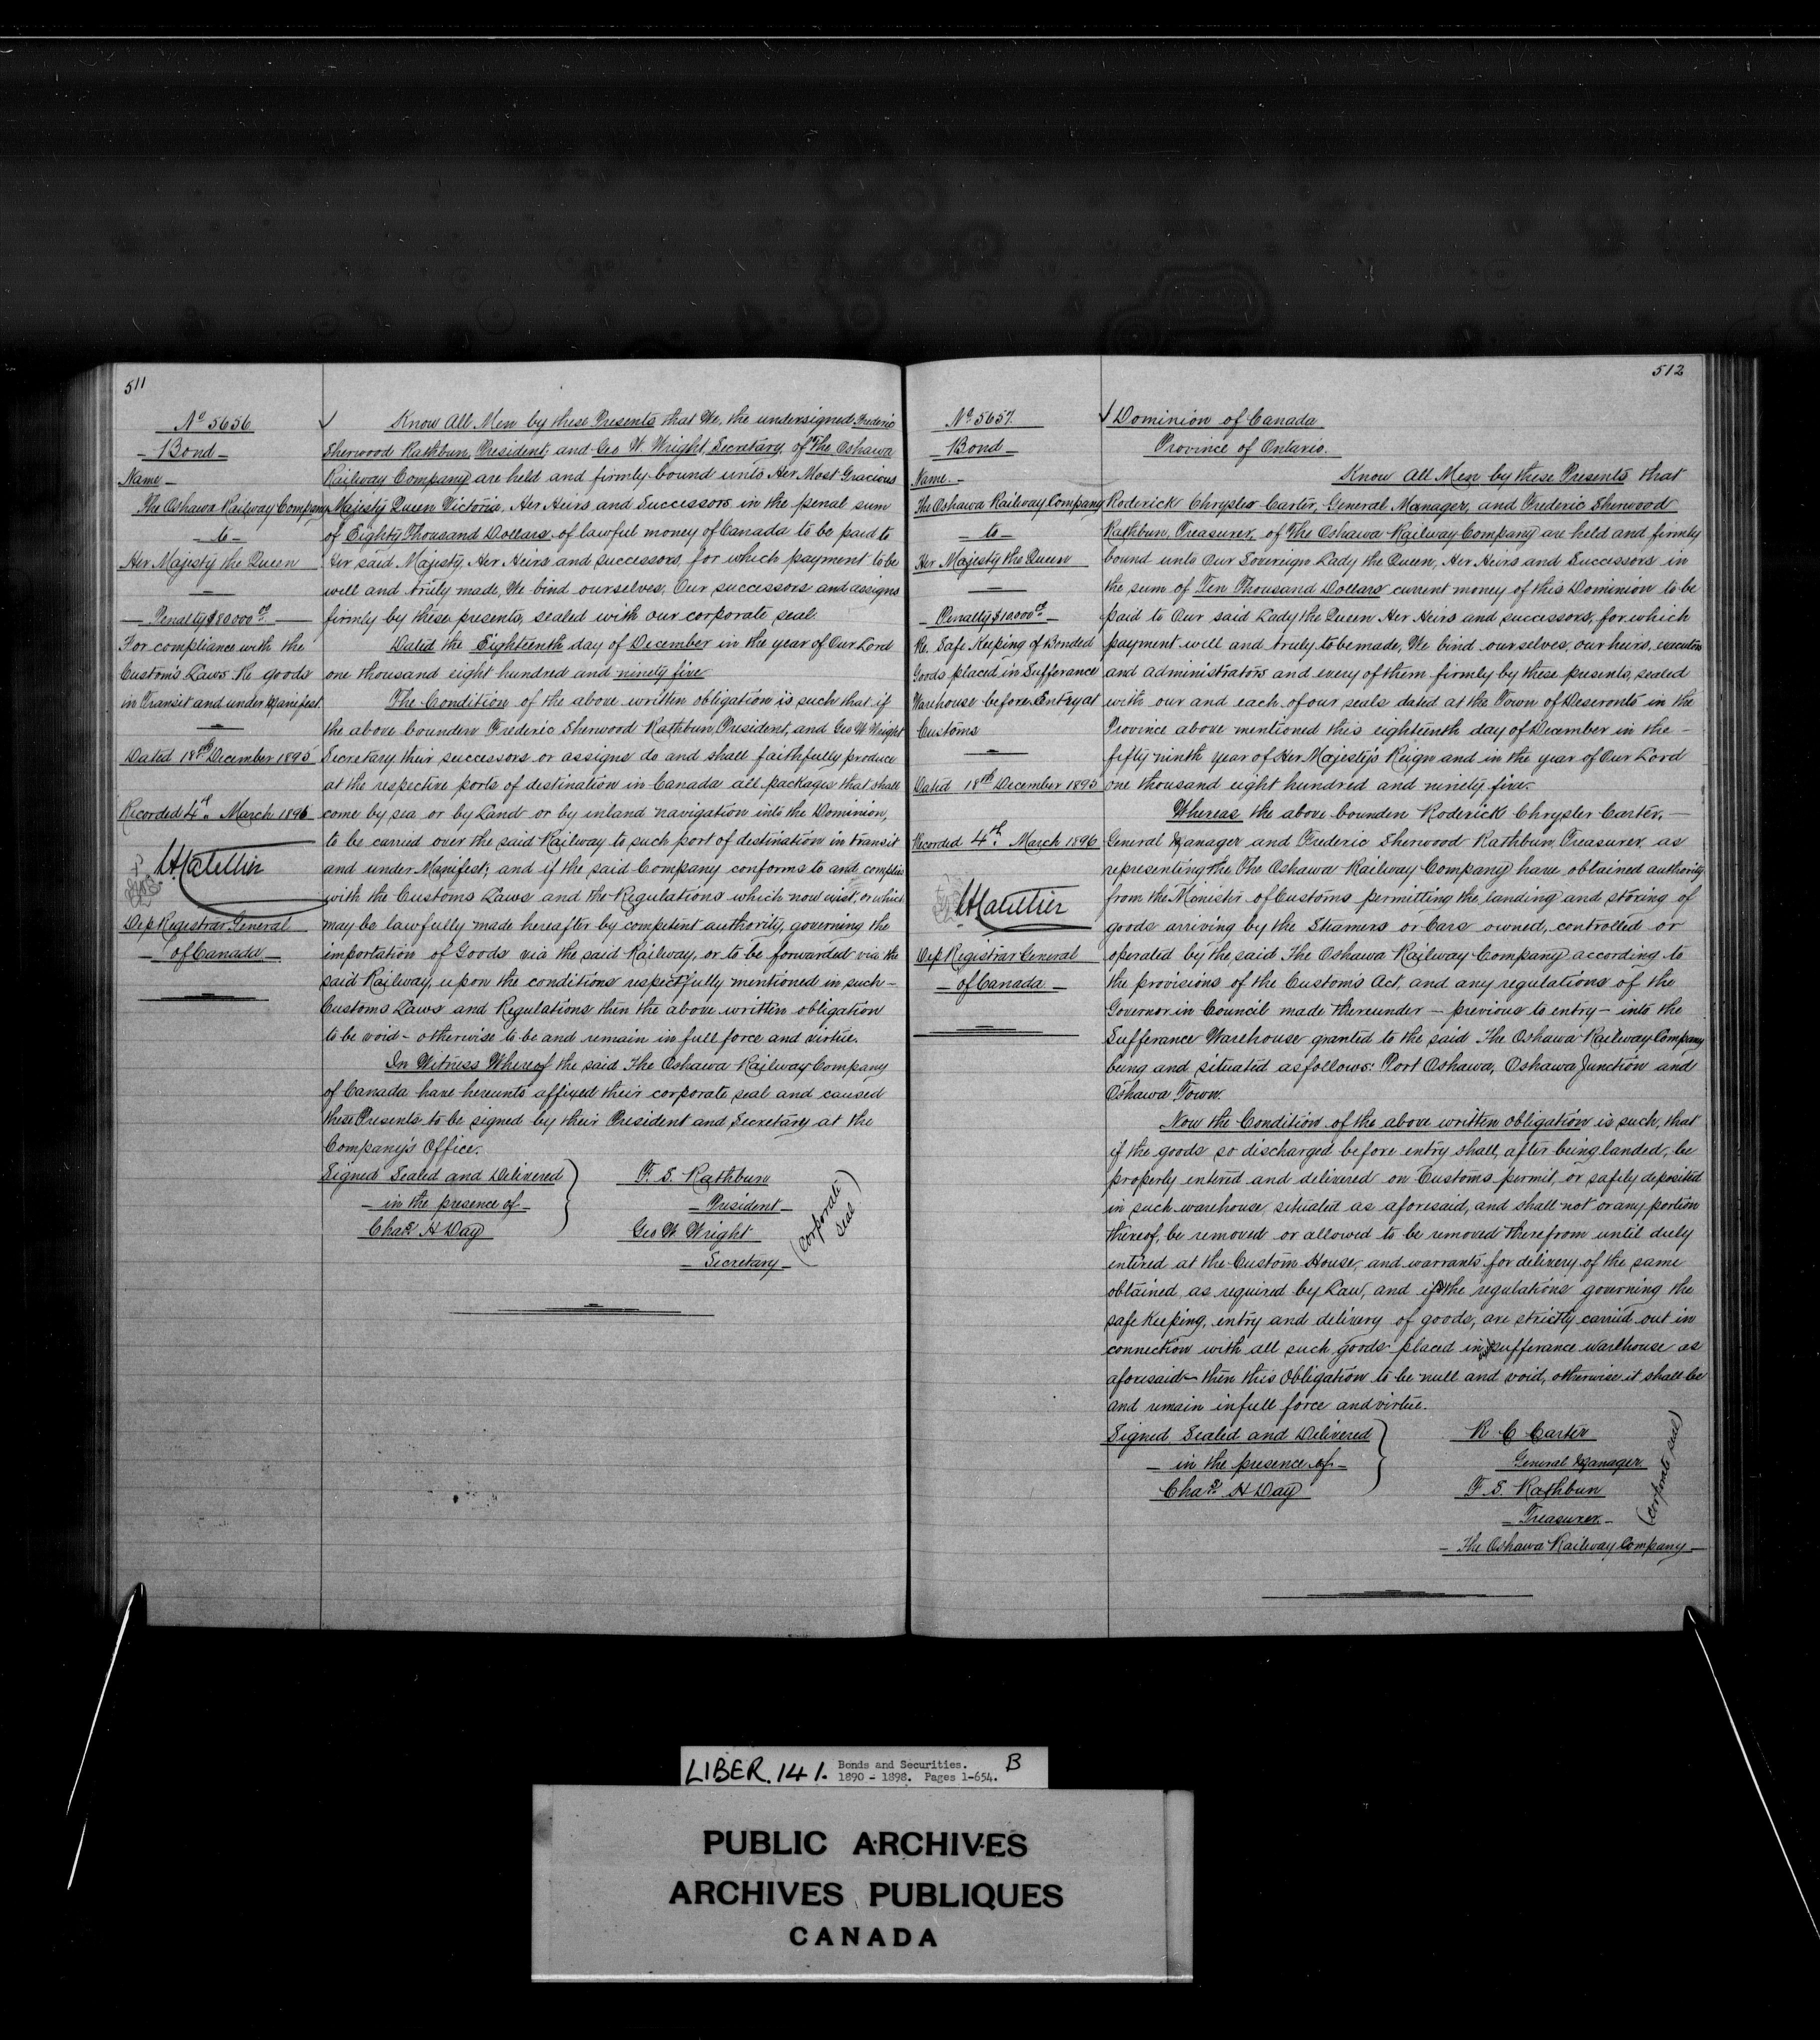 511
Nº 5656
Bond
Name
The Oshawa Railway Company
to
Her Majesty the Queen
Penalty $80000.00
For compliance with the
Customs Laws. Re goods
in Transit and under Manifest.
Dated 18th December 1895
Recorded 4th March 1896
Dep Registrar General
of Canada
Know All Men by these Presents that We, the undersigned Frederic
Sherwood Rathbun, President, and Geo W Wright, Secretary, of The Oshawa
Railway Company are held and firmly bound unto Her Most Gracious
Majesty Queen Victoria, Her Heirs and Successors in the penal sum
of Eighty Thousand Dollars of lawful money of Canada to be paid to
Her said Majesty, Her Heirs and successors, for which payment to be
well and truly made, We bind ourselves, Our successors and assigns
firmly by these presents, sealed with our corporate seal.
Dated the Eighteenth day of December in the year of Our Lord
one thousand eight hundred and ninety five
The Condition of the above written obligation is such that if
the above bounden Frederic Sherwood Rathbun, President, and Geo W Wright
Secretary their successors or assigns do and shall faithfully produce
at the respective ports of destination in Canada all packages that shall
come by sea or by Land or by inland navigation into the Dominion,
to be carried over the said Railway to such port of destination in transit
and under Manifest; and if the said Company conforms to and complies
with the Customs Laws and the Regulations which now exist, or which
may be lawfully made hereafter by competent authority, governing the
importation of Goods via the said Railway, or to be forwarded via the
said Railway, upon the conditions respectfully mentioned in such
Customs Laws and Regulations then the above written obligation
to be void - otherwise to be and remain in full force and virtue.
In Witness Whereof the said The Oshawa Railway Company
of Canada have hereunto affixed their corporate seal and caused
these Presents to be signed by their President and Secretary at the
Company's Office.
Signed Sealed and Delivered
in the presence of
Chas H Day
F. S. Rathbun
President
Geo W Wright
Secretary
(Corporate Seal)
512
Nº 5657
Bond
Name
The Oshawa Railway Company
to
Her Majesty the Queen
Penalty $10000.00
Re. Safe Keeping of Bonded
Goods placed in Sufferance
Warehouse before Entry at
Customs
Dated 18th December 1895
Recorded 4th March 1896
Dep Registrar General
of Canada
Dominion of Canada
Province of Ontario.
Know All Men by these Presents that
Roderick Chrysler Carter, General Manager, and Frederic Sherwood
Rathbun, Treasurer, of The Oshawa Railway Company are held and firmly
bound unto Our Sovereign Lady the Queen, Her Heirs and Successors in
the sum of Ten Thousand Dollars current money of this Dominion to be
paid to Our said Lady the Queen Her Heirs and successors, for which
payment well and truly to be made, We bind ourselves, our heirs, executors
and administrators and every of them firmly by these presents, sealed
with our and each of our seals dated at the Town of Deseronto in the
Province above mentioned this eighteenth day of December in the -
fifty ninth year of Her Majesty's Reign and in the year of Our Lord
one thousand eight hundred and ninety five.
Whereas the above bounden Roderick Chrysler Carter, -
General Manager and Frederic Sherwood Rathbun, Treasurer as
representing the The Oshawa Railway Company have obtained authority
from the Minister of Customs permitting the landing and storing of
goods arriving by the Steamers or Cars owned, controlled or
operated by the said The Oshawa Railway Company according to
the provisions of the Customs Act, and any regulations of the
Governor in Council made thereunder - previous to entry - into the
Sufferance Warehouse granted to the said The Oshawa Railway Company
being and situated as follows: Port Oshawa, Oshawa Junction and
Oshawa Town.
Now the Condition of the above written obligation is such, that
if the goods so discharged before entry shall, after being landed, be
properly entered and delivered on Customs permit, or safely deposited
in such warehouse, situated as aforesaid, and shall not or any portion
thereof, be removed or allowed to be removed therefrom until duly
entered at the Custom House, and warrants for delivery of the same
obtained, as required by Law, and if the regulations governing the
safe keeping, entry and delivery of goods, are strictly carried out in
connection with all such goods placed in such sufferance warehouse as
aforesaid - then this Obligation to be null and void, otherwise it shall be
and remain in full force and virtue.
Signed Sealed and Delivered
in the presence of
Chas. H Day
R C Carter
General Manager
F. S. Rathbun
Treasurer
The Oshawa Railway Company
(Corporate Seal)
LIBER. 141. Bonds and Securities. B
1890 - 1898. Pages 1-654.
PUBLIC ARCHIVES
ARCHIVES PUBLIQUES
CANADA